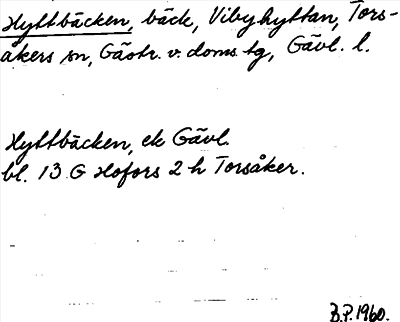 Hyttbäcken, bäck, Vibyhyttan, Tors-
åkers sn, Gästr. v. doms. tg, Gävl. l.
Hyttbäcken, ek Gävl.
bl. 13 G Hofors 2 h Torsåker.
B.P. 1960.